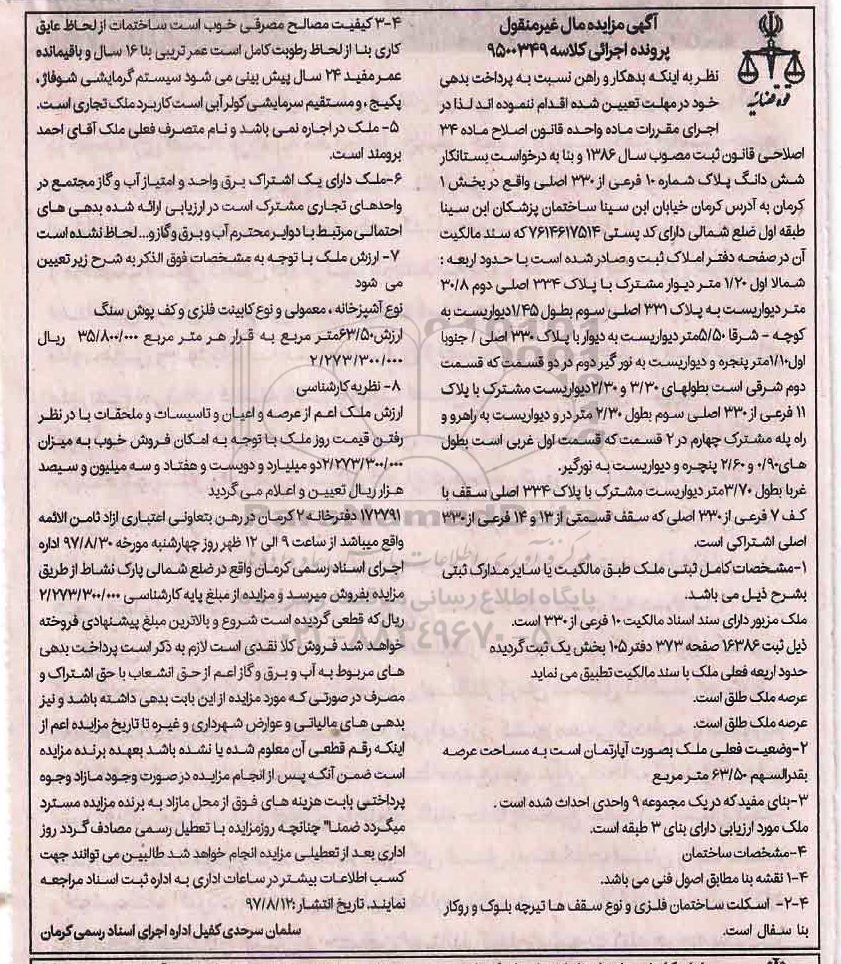 آگهی مزایده مال غیرمنقول
پرونده اجرائی کلاسه ۹۵۰۰۳۴۹
قوه قضائیه
نظر به اینکه بدهکار و راهن نسبت به پرداخت بدهی
خود در مهلت تعیین شده اقدام ننموده اند لذا در
اجرای مقررات ماده واحده قانون اصلاح ماده ۳۴
اصلاحی قانون ثبت مصوب سال ۱۳۸۶ و بنا به درخواست بستانکار
شش دانگ پلاک شماره ۱۰ فرعی از ۳۳۰ اصلی واقع در بخش ۱
کرمان به آدرس کرمان خیابان ابن سینا ساختمان پزشکان ابن سینا
طبقه اول ضلع شمالی دارای کد پستی ۷۶۱۴۶۱۷۵۱۴ که سند مالکیت
آن در صفحه دفتر املاک ثبت و صادر شده است با حدود اربعه :
شمالا اول ۱/۲۰ متر دیوار مشترک با پلاک ۳۳۴ اصلی دوم ۳۰/۸
متر دیواریست به پلاک ۳۳۱ اصلی سوم بطول ۱/۴۵دیواریست به
کوچه - شرقا ۵/۵۰متر دیواریست به دیوار با پلاک ۳۳۰ اصلی / جنوبا
اول۱/۱۰متر پنجره و دیواریست به نور گیر دوم در دو قسمت که قسمت
دوم شرقی است بطولهای ۳/۳۰ و ۲/۳۰دیواریست مشترک با پلاک
۱۱ فرعی از ۳۳۰ اصلی سوم بطول ۲/۳۰ متر در و دیواریست به راهرو و
راه پله مشترک چهارم در ۲ قسمت که قسمت اول غربی است بطول
های۰/۹۰ و ۲/۶۰ پنجره و دیواریست به نورگیر.
غربا بطول ۳/۷۰متر دیواریست مشترک با پلاک ۳۳۴ اصلی سقف با
کف ۷ فرعی از ۳۳۰ اصلی که سقف قسمتی از ۱۳ و ۱۴ فرعی از ۳۳۰
اصلی اشتراکی است.
۱-مشخصات کامل ثبتی ملک طبق مالکیت یا سایر مدارک ثبتی
بشرح ذیل می باشد.
ملک مزبور دارای سند اسناد مالکیت ۱۰ فرعی از ۳۳۰ است.
ذیل ثبت ۱۶۳۸۶ صفحه ۳۷۳ دفتر ۱۰۵ بخش یک ثبت گردیده
حدود اربعه فعلی ملک با سند مالکیت تطبیق می نماید
عرصه ملک طلق است.
عرصه ملک طلق است.
۲-وضعیت فعلی ملک بصورت آپارتمان است به مساحت عرصه
بقدرالسهم ۶۳/۵۰ متر مربع
۳-بنای مفید که در یک مجموعه ۹ واحدی احداث شده است .
ملک مورد ارزیابی دارای بنای ۳ طبقه است.
۴-مشخصات ساختمان
۴-۱ نقشه بنا مطابق اصول فنی می باشد.
۴-۲- اسکلت ساختمان فلزی و نوع سقف ها تیرچه بلوک و روکار
بنا سفال است.
۴-۳ کیفیت مصالح مصرفی خوب است ساختمات از لحاظ عایق
کاری بنا از لحاظ رطوبت کامل است عمر تریبی بنا ۱۶ سال و باقیمانده
عمر مفید ۲۴ سال پیش بینی می شود سیستم گرمایشی شوفاژ،
پکیج ، و مستقیم سرمایشی کولر آبی است کاربرد ملک تجاری است.
۵- ملک در اجاره نمی باشد و نام متصرف فعلی ملک آقای احمد
برومند است.
۶-ملک دارای یک اشتراک برق واحد و امتیاز آب و گاز مجتمع در
واحدهای تجاری مشترک است در ارزیابی ارائه شده بدهی های
احتمالی مرتبط با دوایر محترم آب و برق و گاز و... لحاظ نشده است
۷- ارزش ملک با توجه به مشخصات فوق الذکر به شرح زیر تعیین
می شود
نوع آشپزخانه ، معمولی و نوع کابینت فلزی و کف پوش سنگ
ارزش۶۳/۵۰متر مربع به قرار هر متر مربع ۳۵/۸۰۰/۰۰۰ ریال
۲/۲۷۳/۳۰۰/۰۰۰
۸- نظریه کارشناسی
ارزش ملک اعم از عرصه و اعیان و تاسیسات و ملحقات با در نظر
رفتن قیمت روز ملک با توجه به امکان فروش خوب به میزان
۲/۲۷۳/۳۰۰/۰۰۰دو میلیارد و دویست و هفتاد و سه میلیون و سیصد
هزار ریال تعیین و اعلام می گردید
۱۷۲۷۹۱ دفترخانه ۲ کرمان در رهن بتعاونی اعتباری ازاد ثامن الائمه
واقع میباشد از ساعت ۹ الی ۱۲ ظهر روز چهارشنبه مورخه ۹۷/۸/۳۰ اداره
اجرای اسناد رسمی کرمان واقع در ضلع شمالی پارک نشاط از طریق
مزایده بفروش میرسد و مزایده از مبلغ پایه کارشناسی ۲/۲۷۳/۳۰۰/۰۰۰
ریال که قطعی گردیده است شروع و بالاترین مبلغ پیشنهادی فروخته
خواهد شد فروش کلا نقدی است لازم به ذکر است پرداخت بدهی
های مربوط به آب و برق و گاز اعم از حق انشعاب با حق اشتراک و
مصرف در صورتی که مورد مزایده از این بابت بدهی داشته باشد و نیز
بدهی های مالیاتی و عوارض شهرداری و غیره تا تاریخ مزایده اعم از
اینکه رقم قطعی آن معلوم شده یا نشده باشد بعهده برنده مزایده
است ضمن آنکه پس از انجام مزایده در صورت وجود مازاد وجوه
پرداختی بابت هزینه های فوق از محل مازاد به برنده مزایده مسترد
میگردد ضمنا" چنانچه روز مزایده با تعطیل رسمی مصادف گردد روز
اداری بعد از تعطیلی مزایده انجام خواهد شد طالبین می توانند جهت
کسب اطلاعات بیشتر در ساعات اداری به اداره ثبت اسناد مراجعه
نمایند. تاریخ انتشار :۹۷/۸/۱۲
سلمان سرحدی کفیل اداره اجرای اسناد رسمی کرمان
پایگاه اطلاع رسانی
۰۲۱-۸۸۳۴۹۶۷۰-۵